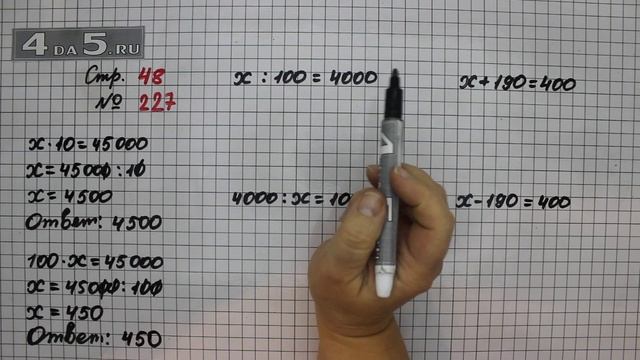 4DA5.RU
Стр. 48
№ 227
x · 10 = 45000
x = 45000 : 10
x = 4500
Ответ: 4500
100 · x = 45000
x = 45000 : 100
x = 450
Ответ: 450
x : 100 = 4000
4000 : x = 10
x + 190 = 400
x - 190 = 400